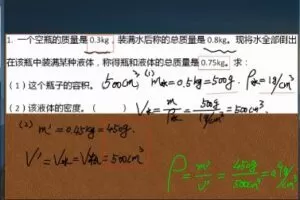 1. 一个空瓶的质量是0.3kg，装满水后称的总质量是0.8kg。现将水全部倒出
在该瓶中装满某种液体，称得瓶和液体的总质量是0.75kg。求：
（1）这个瓶子的容积。500cm³ (1) m水=0.5kg=500g. ρ水=1g/cm³
（2）该液体的密度。V水=m/ρ水=500g/1g/cm³=500cm³
(2) m'=0.45kg=450g.
V'=V水=V瓶=500cm³
ρ=m'/V'=450g/500cm³=0.9g